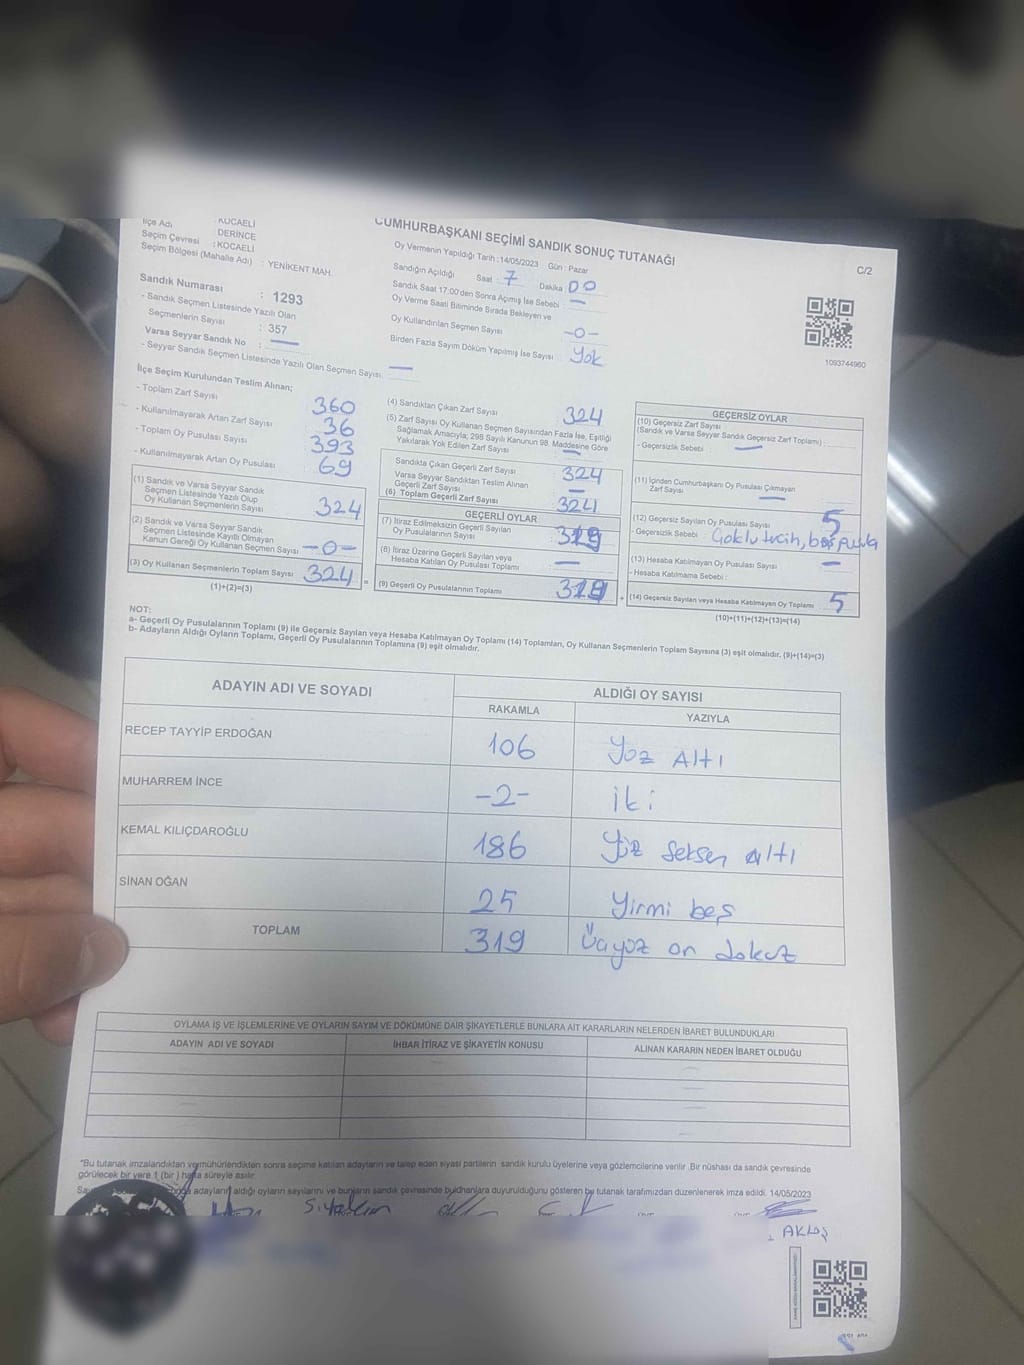 KOCAELİ
İlçe Adı : DERİNCE
Seçim Çevresi : KOCAELİ
Seçim Bölgesi (Mahalle Adı) : YENİKENT MAH.
Sandık Numarası : 1293
- Sandık Seçmen Listesinde Yazılı Olan
Seçmenlerin Sayısı : 357
Varsa Seyyar Sandık No : —
- Seyyar Sandık Seçmen Listesinde Yazılı Olan Seçmen Sayısı: —
CUMHURBAŞKANI SEÇİMİ SANDIK SONUÇ TUTANAĞI
C/2
Oy Vermenin Yapıldığı Tarih :14/05/2023 Gün : Pazar
Sandığın Açıldığı Saat : 7 Dakika : 00
Sandık Saat 17:00'den Sonra Açımış İse Sebebi : —
Oy Verme Saati Bitiminde Sırada Bekleyen ve
Oy Kullandırılan Seçmen Sayısı : -0-
Birden Fazla Sayım Döküm Yapılmış İse Sayısı : Yok
1093744960
İlçe Seçim Kurulundan Teslim Alınan;
- Toplam Zarf Sayısı 360
- Kullanılmayarak Artan Zarf Sayısı 36
- Toplam Oy Pusulası Sayısı 393
- Kullanılmayarak Artan Oy Pusulası 69
(1) Sandık ve Varsa Seyyar Sandık
Seçmen Listesinde Yazılı Olup
Oy Kullanan Seçmenlerin Sayısı 324
(2) Sandık ve Varsa Seyyar Sandık
Seçmen Listesinde Kayıtlı Olmayan
Kanun Gereği Oy Kullanan Seçmen Sayısı -0-
(3) Oy Kullanan Seçmenlerin Toplam Sayısı 324 =
(1)+(2)=(3)
(4) Sandıktan Çıkan Zarf Sayısı 324
(5) Zarf Sayısı Oy Kullanan Seçmen Sayısından Fazla İse, Eşitliği
Sağlamak Amacıyla; 298 Sayılı Kanunun 98. Maddesine Göre
Yakılarak Yok Edilen Zarf Sayısı —
Sandıkta Çıkan Geçerli Zarf Sayısı 324
Varsa Seyyar Sandıktan Teslim Alınan
Geçerli Zarf Sayısı —
(6) Toplam Geçerli Zarf Sayısı 324
GEÇERLİ OYLAR
(7) İtiraz Edilmeksizin Geçerli Sayılan
Oy Pusulalarının Sayısı 319
(8) İtiraz Üzerine Geçerli Sayılan veya
Hesaba Katılan Oy Pusulası Toplamı —
(9) Geçerli Oy Pusulalarının Toplamı 319 +
GEÇERSİZ OYLAR
(10) Geçersiz Zarf Sayısı
(Sandık ve Varsa Seyyar Sandık Geçersiz Zarf Toplamı) :
- Geçersizlik Sebebi : —
(11) İçinden Cumhurbaşkanı Oy Pusulası Çıkmayan
Zarf Sayısı —
(12) Geçersiz Sayılan Oy Pusulası Sayısı 5
- Geçersizlik Sebebi : Çoklu tercih, boş pusula
(13) Hesaba Katılmayan Oy Pusulası Sayısı —
- Hesaba Katılmama Sebebi :
(14) Geçersiz Sayılan veya Hesaba Katılmayan Oy Toplamı 5
(10)+(11)+(12)+(13)=(14)
NOT:
a- Geçerli Oy Pusulalarının Toplamı (9) ile Geçersiz Sayılan veya Hesaba Katılmayan Oy Toplamı (14) Toplamları, Oy Kullanan Seçmenlerin Toplam Sayısına (3) eşit olmalıdır. (9)+(14)=(3)
b- Adayların Aldığı Oyların Toplamı, Geçerli Oy Pusulalarının Toplamına (9) eşit olmalıdır.
ADAYIN ADI VE SOYADI ALDIĞI OY SAYISI
RAKAMLA YAZIYLA
RECEP TAYYİP ERDOĞAN 106 Yüz Altı
MUHARREM İNCE -2- İki
KEMAL KILIÇDAROĞLU 186 Yüz Seksen altı
SİNAN OĞAN 25 Yirmi beş
TOPLAM 319 Üçyüz on dokuz
OYLAMA İŞ VE İŞLEMLERİNE VE OYLARIN SAYIM VE DÖKÜMÜNE DAİR ŞİKAYETLERLE BUNLARA AİT KARARLARIN NELERDEN İBARET BULUNDUKLARI
ADAYIN ADI VE SOYADI İHBAR İTİRAZ VE ŞİKAYETİN KONUSU ALINAN KARARIN NEDEN İBARET OLDUĞU
*Bu tutanak imzalandıktan ve mühürlendikten sonra seçime katılan adayların ve talep eden siyasi partilerin sandık kurulu üyelerine veya gözlemcilerine verilir. Bir nüshası da sandık çevresinde
görülecek bir yere 1 (bir) hafta süreyle asılır.
adayların aldığı oyların sayılarını ve bunların sandık çevresinde bulunanlara duyurulduğunu gösteren bu tutanak tarafımızdan düzenlenerek imza edildi. 14/05/2023